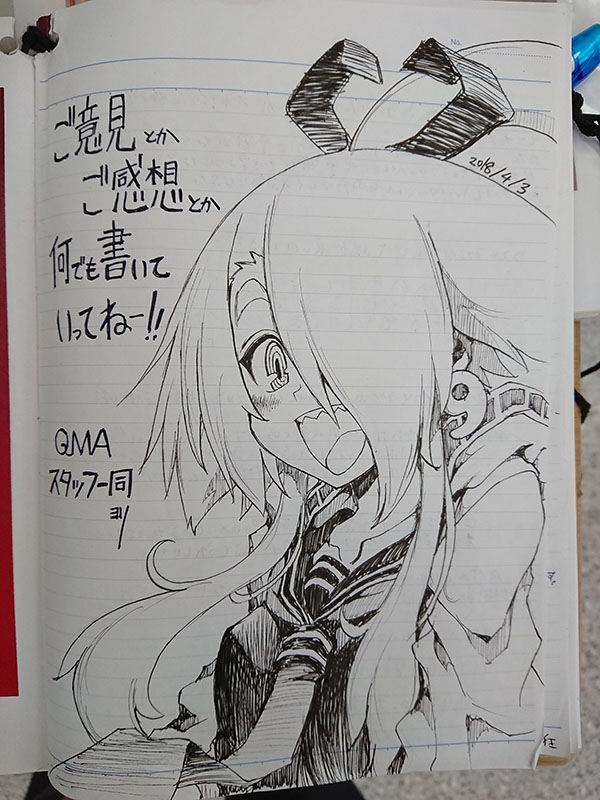 No.
2018/4/3.
ご意見とか
ご感想とか
何でも書いて
いってねー!!
QMA
スタッフ一同
ヨリ